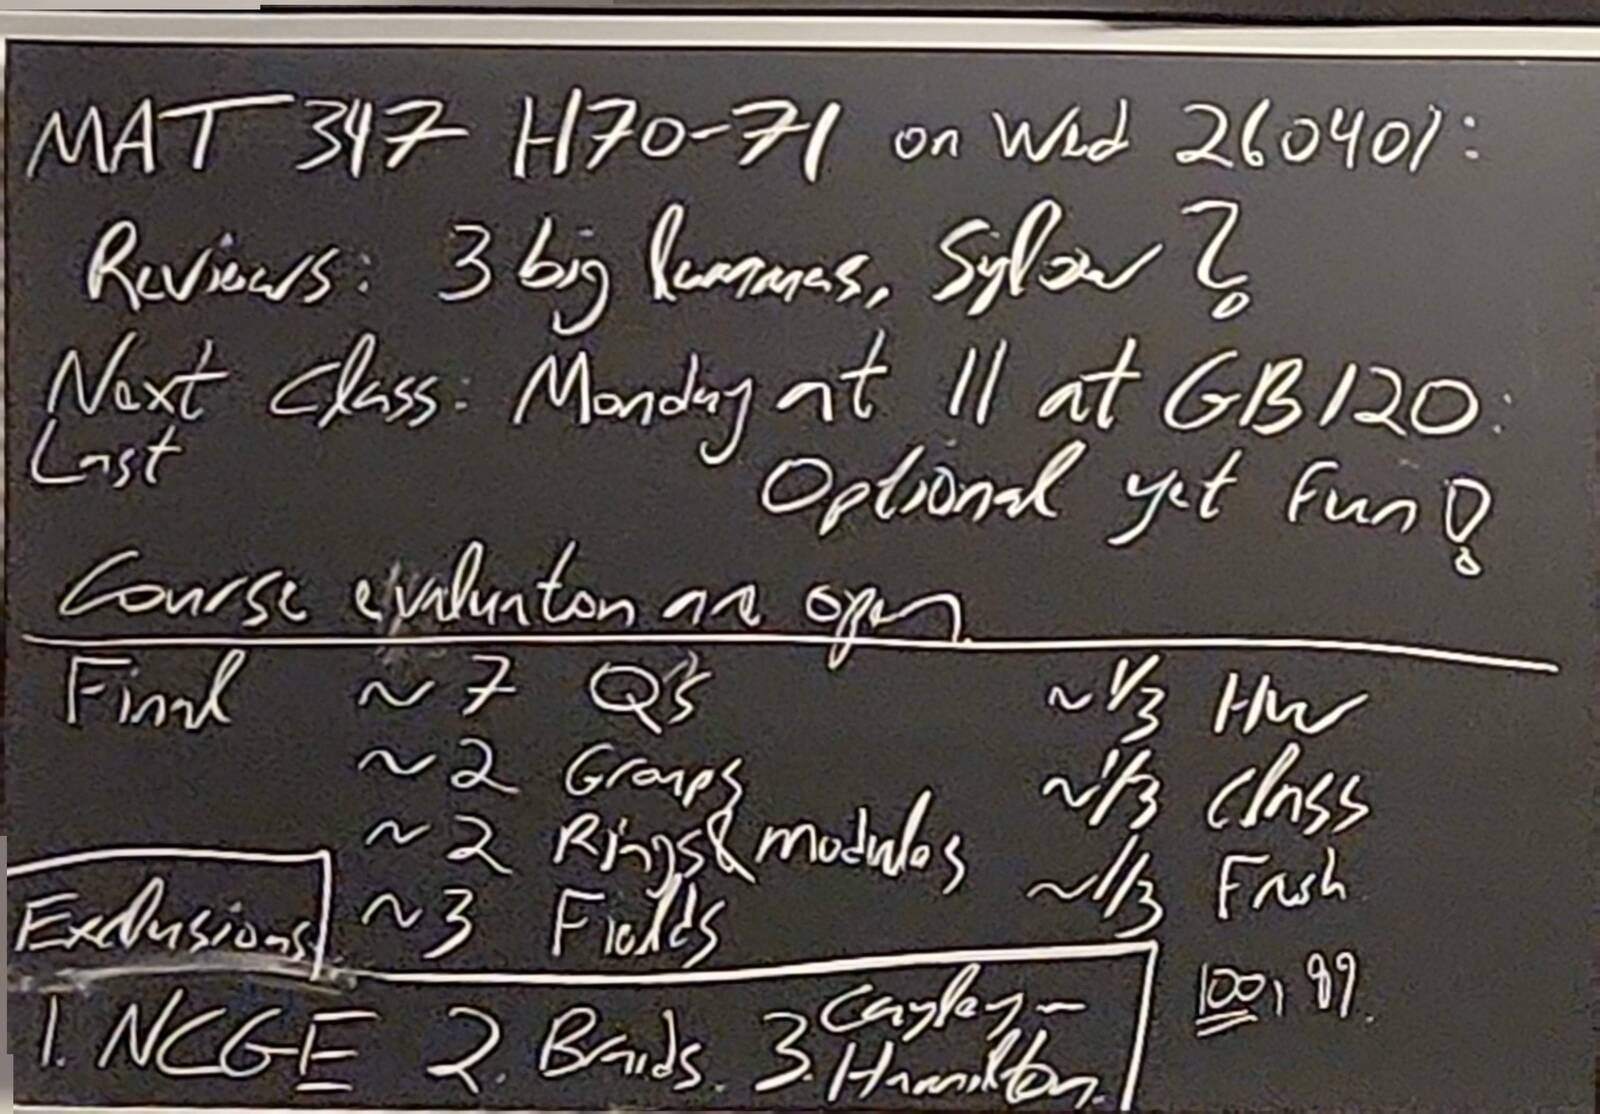 MAT 347 H70-71 on Wed 260401:
Reviews: 3 big lemmas, Sylow?
Next class: Monday at 11 at GB120:
Last
Optional yet Fun!
Course evaluaton are open.
Final ~7 Q's ~1/3 HW
~2 Groups ~1/3 class
~2 Rings& modules ~1/3 Fresh
Exclusions ~3 Fields
1. NCGE 2. Braids. 3. Cayley-Hamilton.
100, 89.